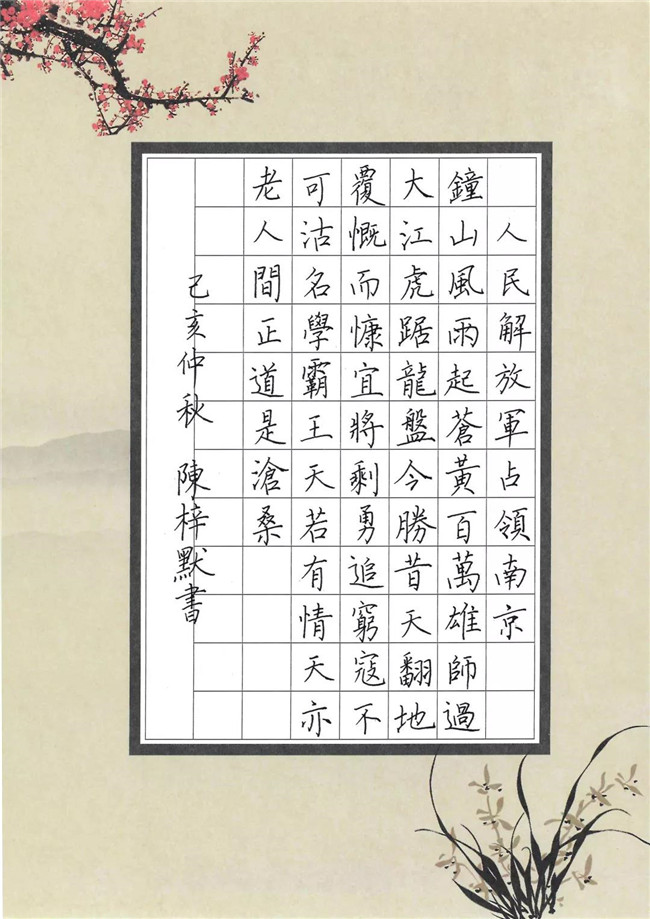 人民解放軍占領南京
鐘山風雨起蒼黃百萬雄師過
大江虎踞龍盤今勝昔天翻地
覆慨而慷宜將剩勇追窮寇不
可沽名學霸王天若有情天亦
老人間正道是滄桑
己亥仲秋 陳梓默書